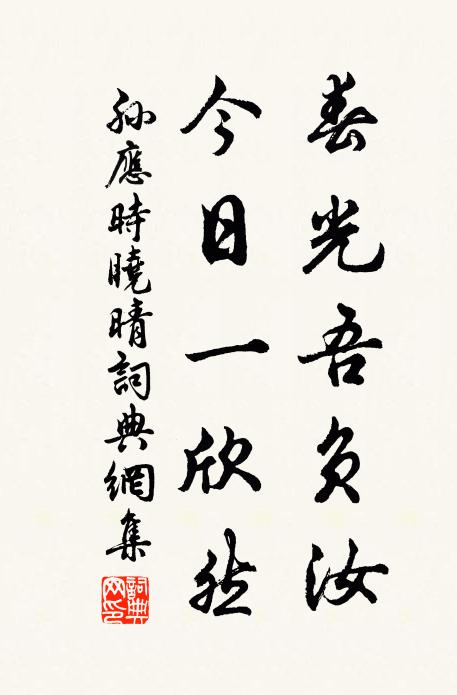 春光吾負汝
今日一欣然
孫應時曉晴詞典網集
詞典網印